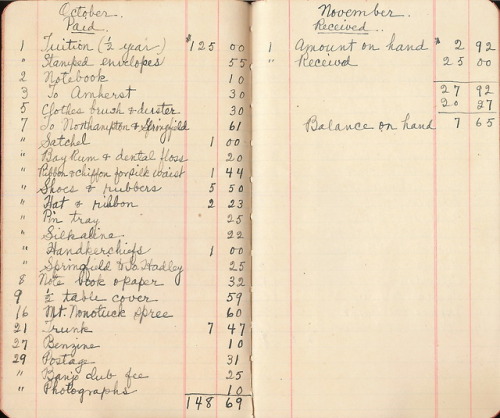 October.
Paid.
1 Tuition (½ year) $125 00
" Stamped envelopes 55
2 Notebook 10
3 To Amherst 30
5 Clothes brush & duster 30
7 To Northampton & Springfield 61
" Satchel 1 00
" Bay Rum & dental floss 20
" Ribbon & chiffon for silk waist 1 44
" Shoes & rubbers 5 50
" Hat & ribbon 2 23
" Pin tray 25
" Silkaline 22
" Handkerchiefs 1 00
" Springfield to So. Hadley 25
8 Note book & paper 32
9 ½ table cover 59
16 Mt. Nonotuck spree 60
21 Trunk 7 47
27 Benzine 10
29 Postage 31
" Banjo club fee 25
" Photographs 10
148 69
November.
Received.
1 Amount on hand $2 92
" Received 25 00
27 92
20 27
Balance on hand 7 65